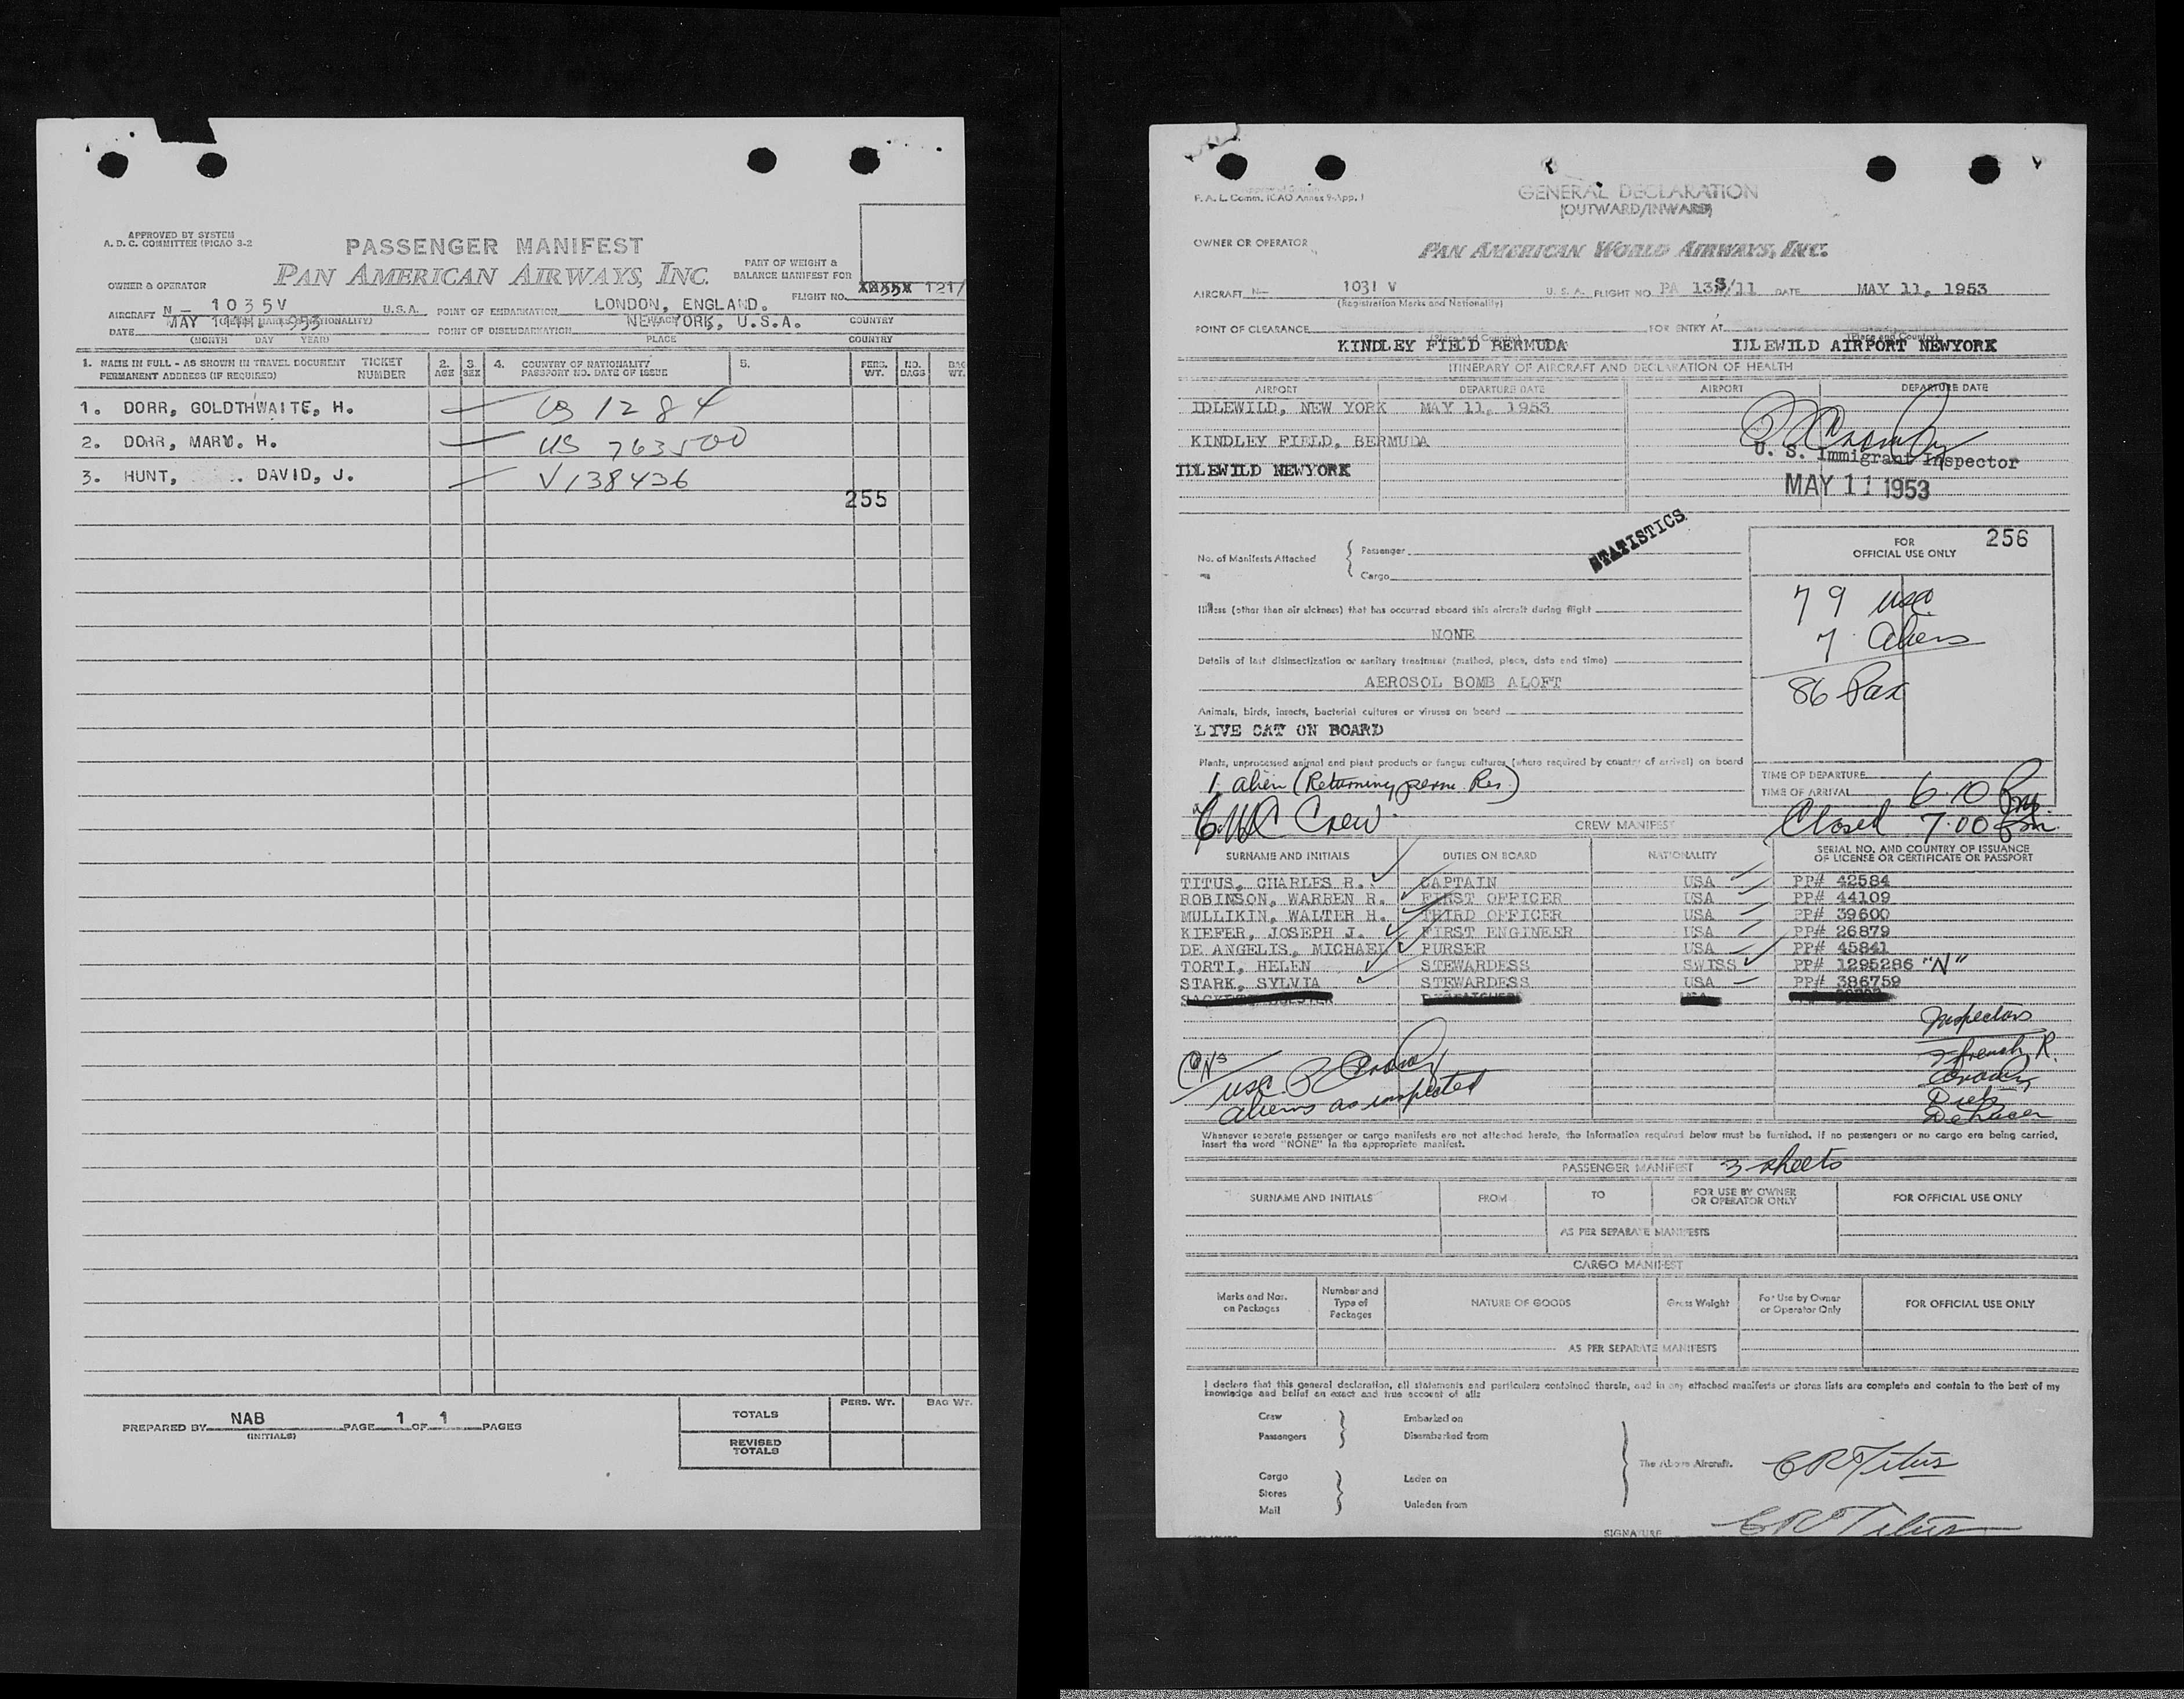 APPROVED BY SYSTEM
A. D. C. COMMITTEE (PICAO 3-2
PASSENGER MANIFEST
PAN AMERICAN AIRWAYS, INC.
PART OF WEIGHT &
BALANCE MANIFEST FOR
OWNER & OPERATOR
FLIGHT NO. 121/
AIRCRAFT N- 1035V U.S.A. POINT OF EMBARKATION LONDON, ENGLAND.
DATE MAY 11TH. 1953 POINT OF DISEMBARKATION NEW YORK, U.S.A. COUNTRY
(MONTH DAY YEAR) PLACE COUNTRY
1. NAME IN FULL - AS SHOWN IN TRAVEL DOCUMENT TICKET 2. 3. 4. COUNTRY OF NATIONALITY 5. PERS. NO. BAG
PERMANENT ADDRESS (IF REQUIRED) NUMBER AGE SEX PASSPORT NO. DATE OF ISSUE WT. BAGS WT.
1. DORR, GOLDTHWAITE, H. US 1284
2. DORR, MARY. H. US 763500
3. HUNT, DAVID, J. V138436
255
PREPARED BY NAB PAGE 1 OF 1 PAGES
(INITIALS)
PERS. WT. BAG WT.
TOTALS
REVISED
TOTALS
F. A. L. Comm. ICAO Annex 9-App. 1
GENERAL DECLARATION
(OUTWARD/INWARD)
OWNER OR OPERATOR PAN AMERICAN WORLD AIRWAYS, INC.
AIRCRAFT N- 1031 V U. S. A. FLIGHT NO PA 133/11 DATE MAY 11, 1953
(Registration Marks and Nationality)
POINT OF CLEARANCE FOR ENTRY AT
(Place and Country) (Place and Country)
KINDLEY FIELD BERMUDA IDLEWILD AIRPORT NEWYORK
ITINERARY OF AIRCRAFT AND DECLARATION OF HEALTH
AIRPORT DEPARTURE DATE AIRPORT DEPARTURE DATE
IDLEWILD, NEW YORK MAY 11, 1953
KINDLEY FIELD, BERMUDA
IDLEWILD NEWYORK
U. S. Immigrant Inspector
MAY 11 1953
STATISTICS
No. of Manifests Attached
Passenger
Cargo
FOR
OFFICIAL USE ONLY
256
79 usc
7 aliens
86 Pax
Illness (other than air sickness) that has occurred aboard this aircraft during flight
NONE
Details of last disinsectization or sanitary treatment (method, place, date and time)
AEROSOL BOMB ALOFT
Animals, birds, insects, bacterial cultures or viruses on board
LIVE CAT ON BOARD
Plants, unprocessed animal and plant products or fungus cultures (where required by country of arrival) on board
1 alien (Returning perm. Res.)
6 USC Crew
TIME OF DEPARTURE
TIME OF ARRIVAL 6:10 Pm
Closed 7:00 Pm
CREW MANIFEST
SURNAME AND INITIALS DUTIES ON BOARD NATIONALITY SERIAL NO. AND COUNTRY OF ISSUANCE
OF LICENSE OR CERTIFICATE OR PASSPORT
TITUS, CHARLES R. CAPTAIN USA PP# 42584
ROBINSON, WARREN R. FIRST OFFICER USA PP# 44109
MULLIKIN, WALTER H. THIRD OFFICER USA PP# 39600
KIEFER, JOSEPH J. FIRST ENGINEER USA PP# 26879
DE ANGELIS, MICHAEL PURSER USA PP# 45841
TORTI, HELEN STEWARDESS SWISS PP# 1295286 "N"
STARK, SYLVIA STEWARDESS USA PP# 386759
Inspectors
French, R.
Crowley
usc
aliens as inspected
Whenever separate passenger or cargo manifests are not attached hereto, the information required below must be furnished. If no passengers or no cargo are being carried,
insert the word "NONE" in the appropriate manifest.
PASSENGER MANIFEST 3 sheets
SURNAME AND INITIALS FROM TO FOR USE BY OWNER
OR OPERATOR ONLY FOR OFFICIAL USE ONLY
AS PER SEPARATE MANIFESTS
CARGO MANIFEST
Marks and Nos.
on Packages
Number and
Type of
Packages
NATURE OF GOODS
Gross Weight
For Use by Owner
or Operator Only
FOR OFFICIAL USE ONLY
AS PER SEPARATE MANIFESTS
I declare that this general declaration, all statements and particulars contained therein, and in any attached manifests or stores lists are complete and contain to the best of my
knowledge and belief an exact and true account of all:
Crew Embarked on
Passengers Disembarked from
The Above Aircraft.
CR Titus
Cargo Laden on
Stores
Mail Unladen from
SIGNATURE CR Titus